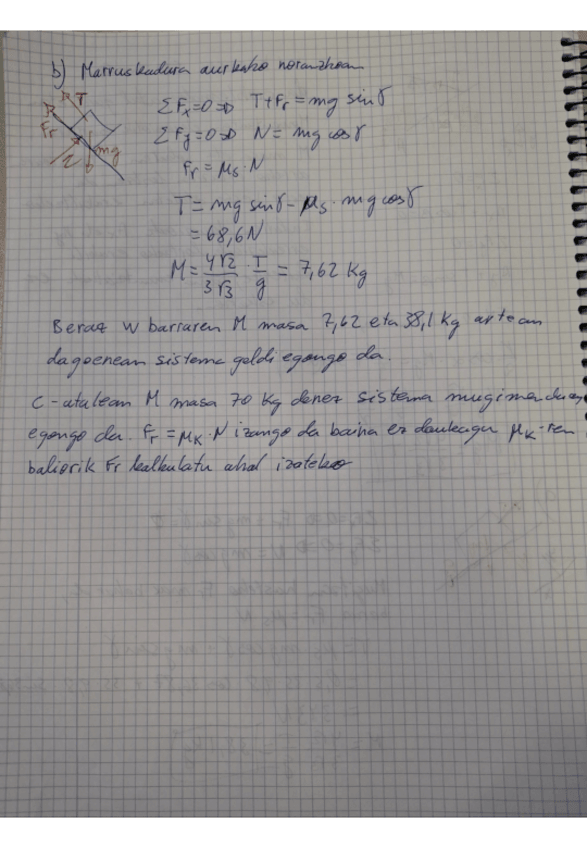 b) Marruskadura aurkako noranzkoan
T
Fr
N
mg
ΣFx=0 ⇒ T+Fr = mg sinγ
ΣFy=0 ⇒ N = mg cosγ
Fr = μs·N
T = mg sinγ - μs·mg cosγ
= 68,6N
M = 4√2/3√3 · T/g = 7,62 Kg
Beraz W barraren M masa 7,62 eta 38,1 Kg artean
dagoenean sistema geldi egongo da.
C-atalean M masa 70 Kg denez sistema mugimenduan
egongo da. Fr = μK·N izango da baina ez daukagu μK-ren
baliorik Fr kalkulatu ahal izateko